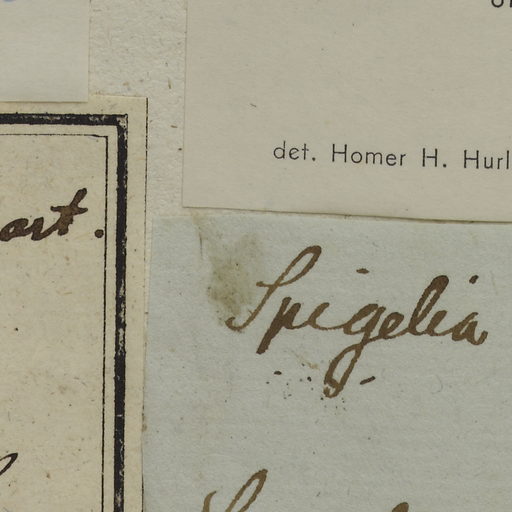 det. Homer H. Hurl
art.
Spigelia